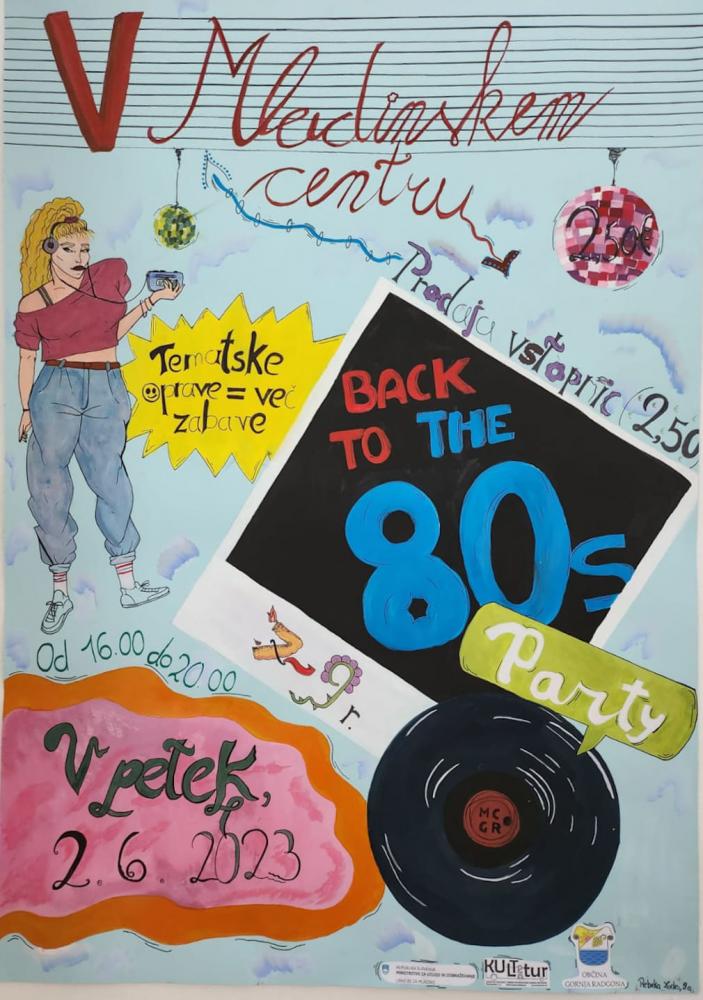 V Mladinskem
centru
2,50€
Prodaja vstopnic (2,50
Tematske
oprave = več
zabave
BACK
TO THE
80s
Party
7. 9. r.
Od 16.00 do 20.00
V petek,
2. 6. 2023
MC
GR
REPUBLIKA SLOVENIJA
MINISTRSTVO ZA VZGOJO IN IZOBRAŽEVANJE
URAD ZA MLADINO
KULTetur
OBČINA
GORNJA RADGONA